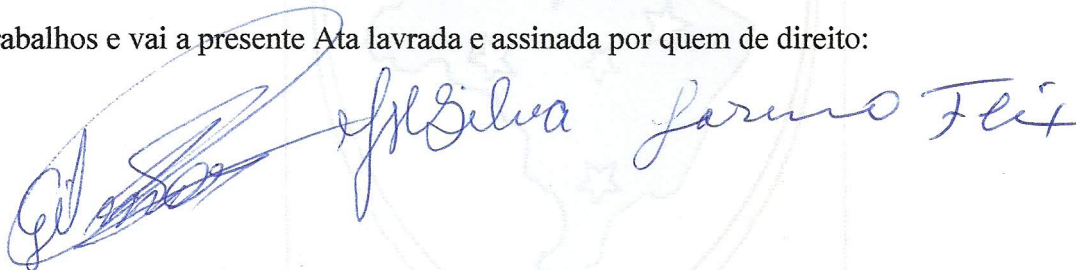 rabalhos e vai a presente Ata lavrada e assinada por quem de direito:
Silva